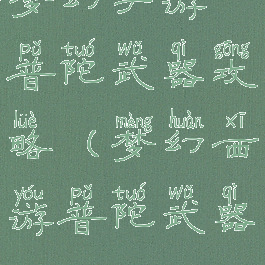 pǔ tuó wǔ qì gōng
普陀武器攻
lüè mèng huàn xī
略(梦幻西
yóu pǔ tuó wǔ qì
游普陀武器